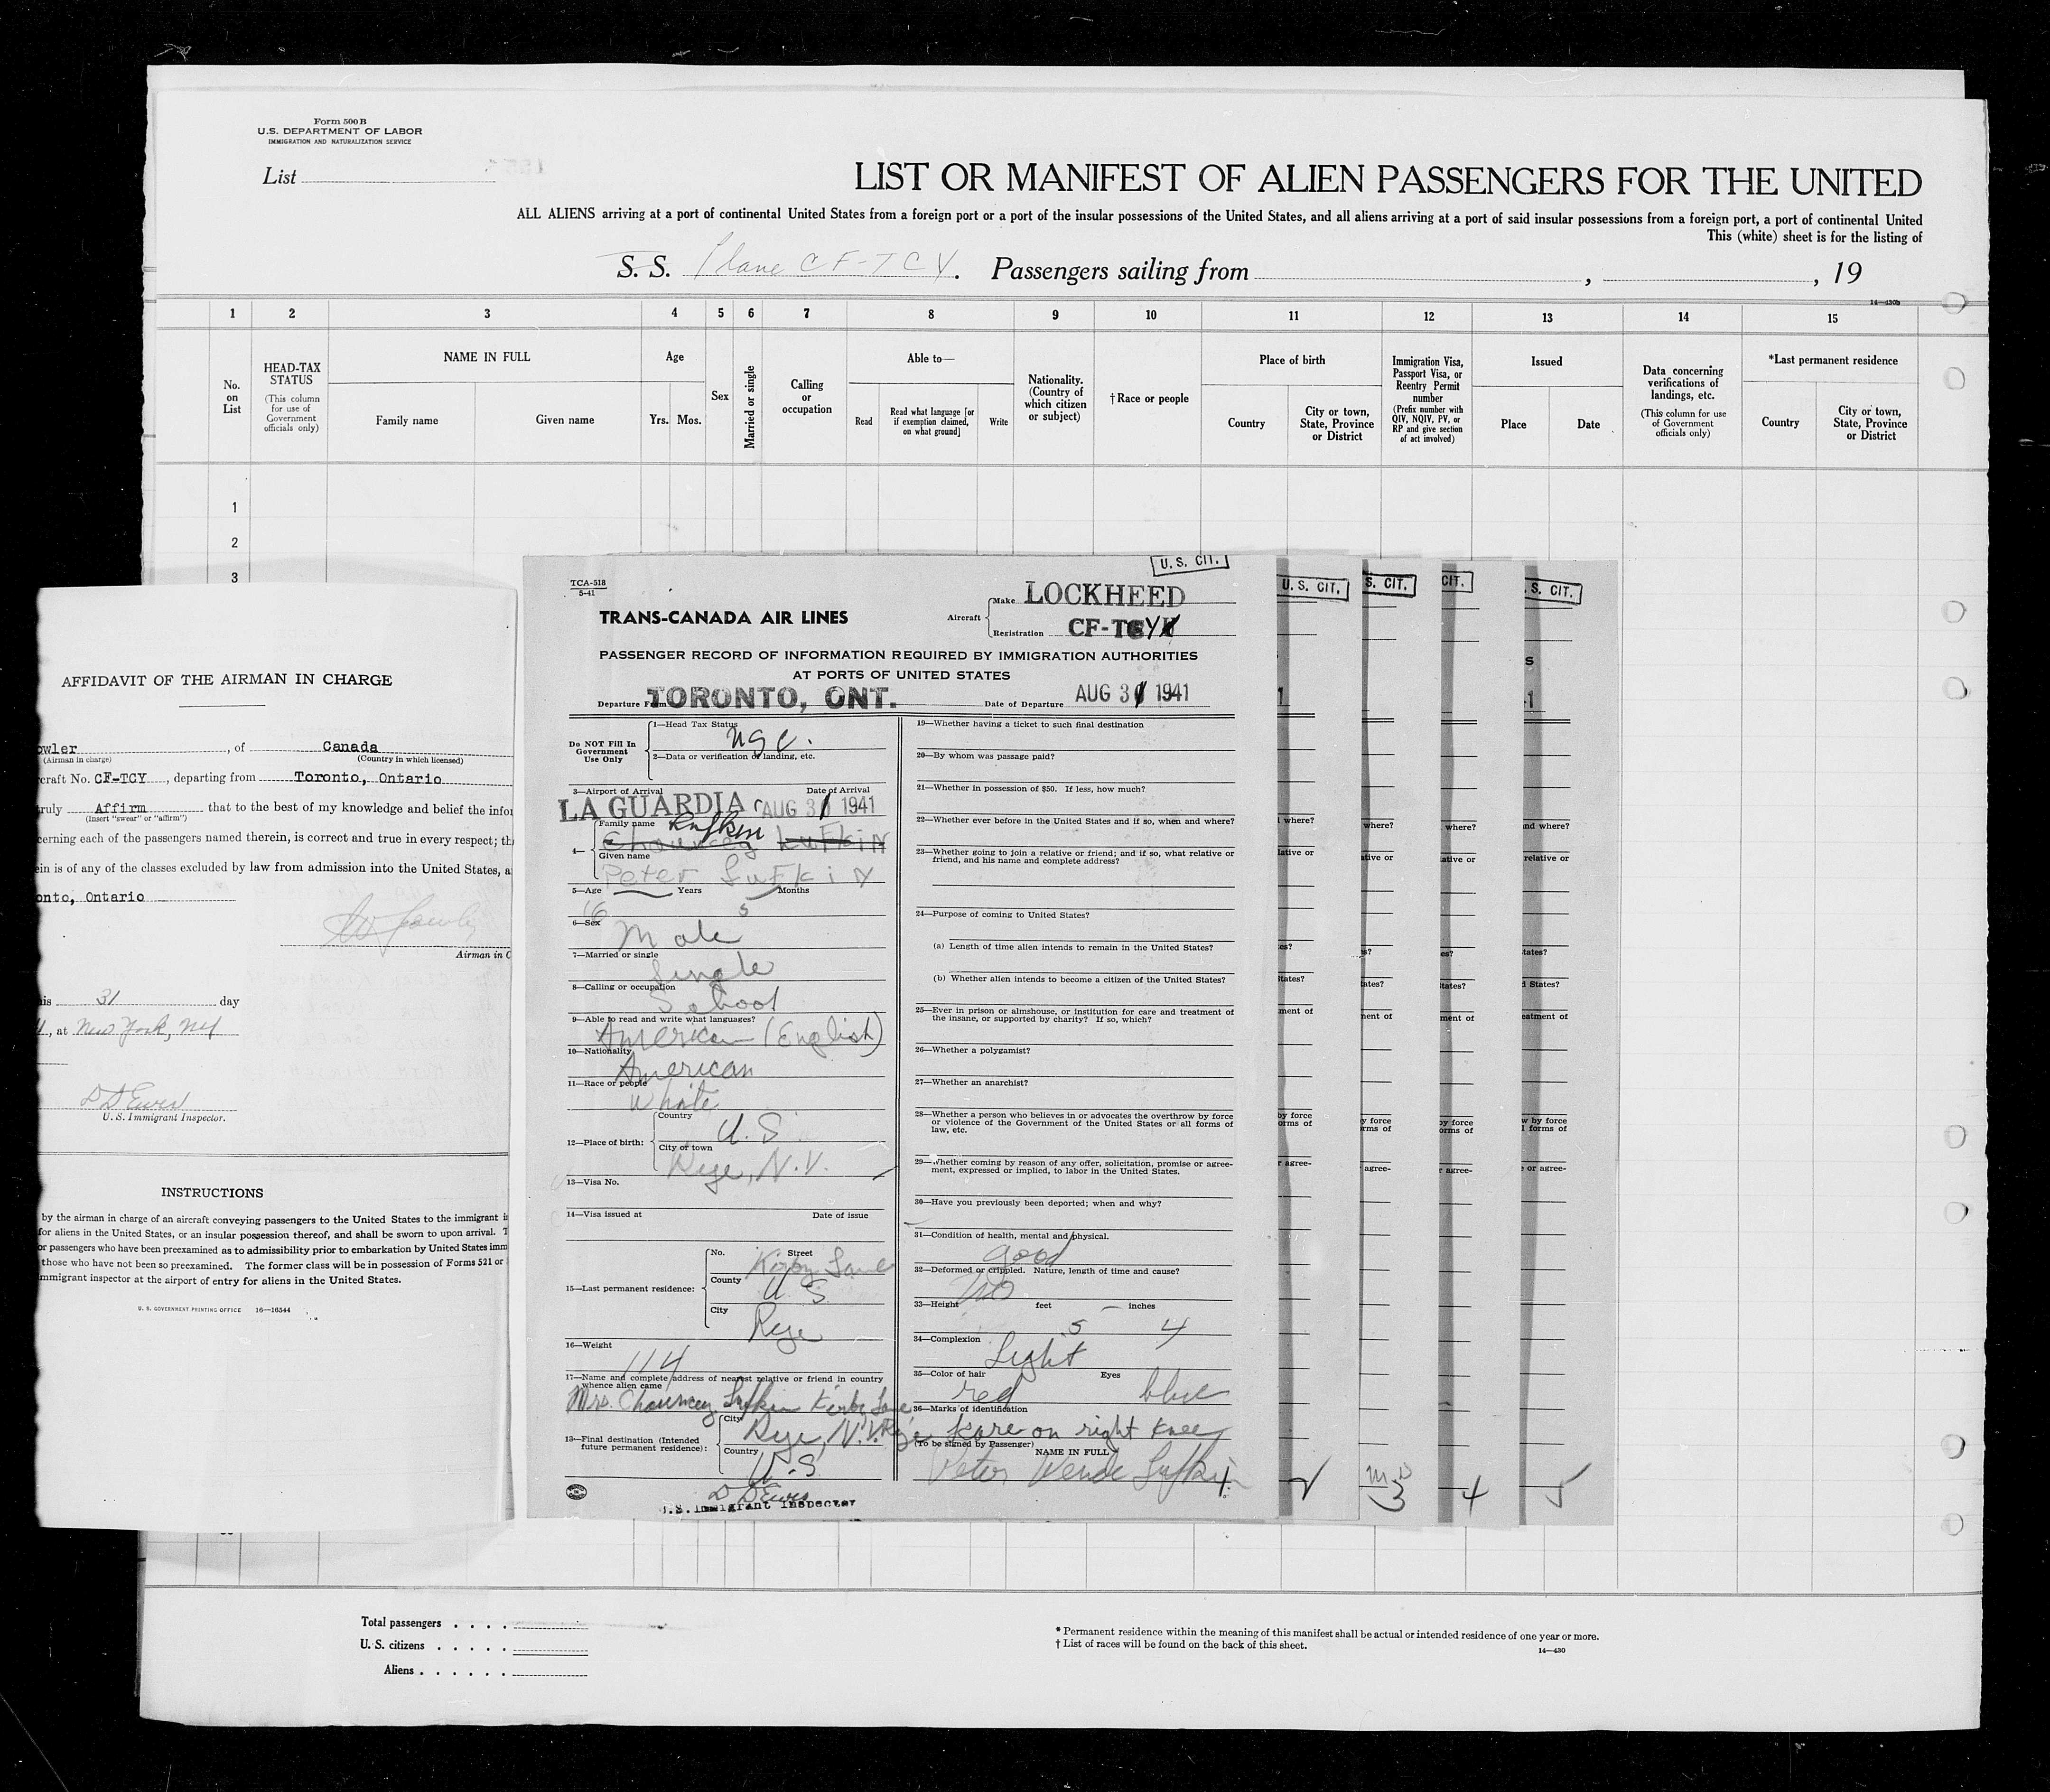 Form 500B
U.S. DEPARTMENT OF LABOR
IMMIGRATION AND NATURALIZATION SERVICE
List
LIST OR MANIFEST OF ALIEN PASSENGERS FOR THE UNITED
ALL ALIENS arriving at a port of continental United States from a foreign port or a port of the insular possessions of the United States, and all aliens arriving at a port of said insular possessions from a foreign port, a port of continental United
This (white) sheet is for the listing of
S. S. Plane CF-TCY. Passengers sailing from , , 19
14—430b
1 2 3 4 5 6 7 8 9 10 11 12 13 14 15
No. on List
HEAD-TAX STATUS
(This column for use of Government officials only)
NAME IN FULL
Family name Given name
Age
Yrs. Mos.
Sex
Married or single
Calling or occupation
Able to—
Read
Read what language [or if exemption claimed, on what ground]
Write
Nationality. (Country of which citizen or subject)
† Race or people
Place of birth
Country
City or town, State, Province or District
Immigration Visa, Passport Visa, or Reentry Permit number
(Prefix number with QIV, NQIV, PV, or RP and give section of act involved)
Issued
Place Date
Data concerning verifications of landings, etc.
(This column for use of Government officials only)
*Last permanent residence
Country
City or town, State, Province or District
1
2
3
AFFIDAVIT OF THE AIRMAN IN CHARGE
owler , of Canada
(Airman in charge) (Country in which licensed)
craft No. CF-TCY , departing from Toronto, Ontario
truly Affirm that to the best of my knowledge and belief the infor
(Insert "swear" or "affirm")
cerning each of the passengers named therein, is correct and true in every respect; th
ein is of any of the classes excluded by law from admission into the United States, a
onto, Ontario
Airman in C
is 31 day
, at New York, NY
D D Ewes
U. S. Immigrant Inspector.
INSTRUCTIONS
by the airman in charge of an aircraft conveying passengers to the United States to the immigrant i
for aliens in the United States, or an insular possession thereof, and shall be sworn to upon arrival. T
or passengers who have been preexamined as to admissibility prior to embarkation by United States imm
those who have not been so preexamined. The former class will be in possession of Forms 521 or
mmigrant inspector at the airport of entry for aliens in the United States.
U. S. GOVERNMENT PRINTING OFFICE 16—16544
U. S. CIT.
TCA-518
5-41
TRANS-CANADA AIR LINES
Aircraft
Make LOCKHEED
Registration CF-TCY
PASSENGER RECORD OF INFORMATION REQUIRED BY IMMIGRATION AUTHORITIES
AT PORTS OF UNITED STATES
Departure From TORONTO, ONT. Date of Departure AUG 31 1941
Do NOT Fill In Government Use Only
1—Head Tax Status
2—Data or verification of landing, etc.
3—Airport of Arrival Date of Arrival
LA GUARDIA AUG 31 1941
4—
Family name Lufkin
Chauncey Lufkin
Given name
Peter Lufkin
5—Age Years Months
16 5
6—Sex
Male
7—Married or single
Single
8—Calling or occupation
School
9—Able to read and write what languages?
American (English)
10—Nationality
American
11—Race or people
White
12—Place of birth:
Country
U.S
City or town
Rye, N.Y.
13—Visa No.
14—Visa issued at Date of issue
15—Last permanent residence:
No. Street
Kirby Lane
County
U.S.
City
Rye
16—Weight
114
17—Name and complete address of nearest relative or friend in country whence alien came
Mrs. Chauncey Lufkin Kirby Lane Rye
18—Final destination (Intended future permanent residence):
City
Rye, N.Y.
Country
U.S
D D Ewes
U.S. Immigrant Inspector
19—Whether having a ticket to such final destination
20—By whom was passage paid?
21—Whether in possession of $50. If less, how much?
22—Whether ever before in the United States and if so, when and where?
23—Whether going to join a relative or friend; and if so, what relative or
friend, and his name and complete address?
24—Purpose of coming to United States?
(a) Length of time alien intends to remain in the United States?
(b) Whether alien intends to become a citizen of the United States?
25—Ever in prison or almshouse, or institution for care and treatment of
the insane, or supported by charity? If so, which?
26—Whether a polygamist?
27—Whether an anarchist?
28—Whether a person who believes in or advocates the overthrow by force
or violence of the Government of the United States or all forms of
law, etc.
29—Whether coming by reason of any offer, solicitation, promise or agree-
ment, expressed or implied, to labor in the United States.
30—Have you previously been deported; when and why?
31—Condition of health, mental and physical.
good
32—Deformed or crippled. Nature, length of time and cause?
No
33—Height feet inches
5 4
34—Complexion
Light
35—Color of hair Eyes
red blue
36—Marks of identification
Scare on right knee
(To be signed by Passenger) NAME IN FULL
Peter Wende Lufkin
1.
U. S. CIT.
S. CIT.
CIT.
. S. CIT.
3
4
5
Total passengers
U. S. citizens
Aliens
* Permanent residence within the meaning of this manifest shall be actual or intended residence of one year or more.
† List of races will be found on the back of this sheet.
14—430